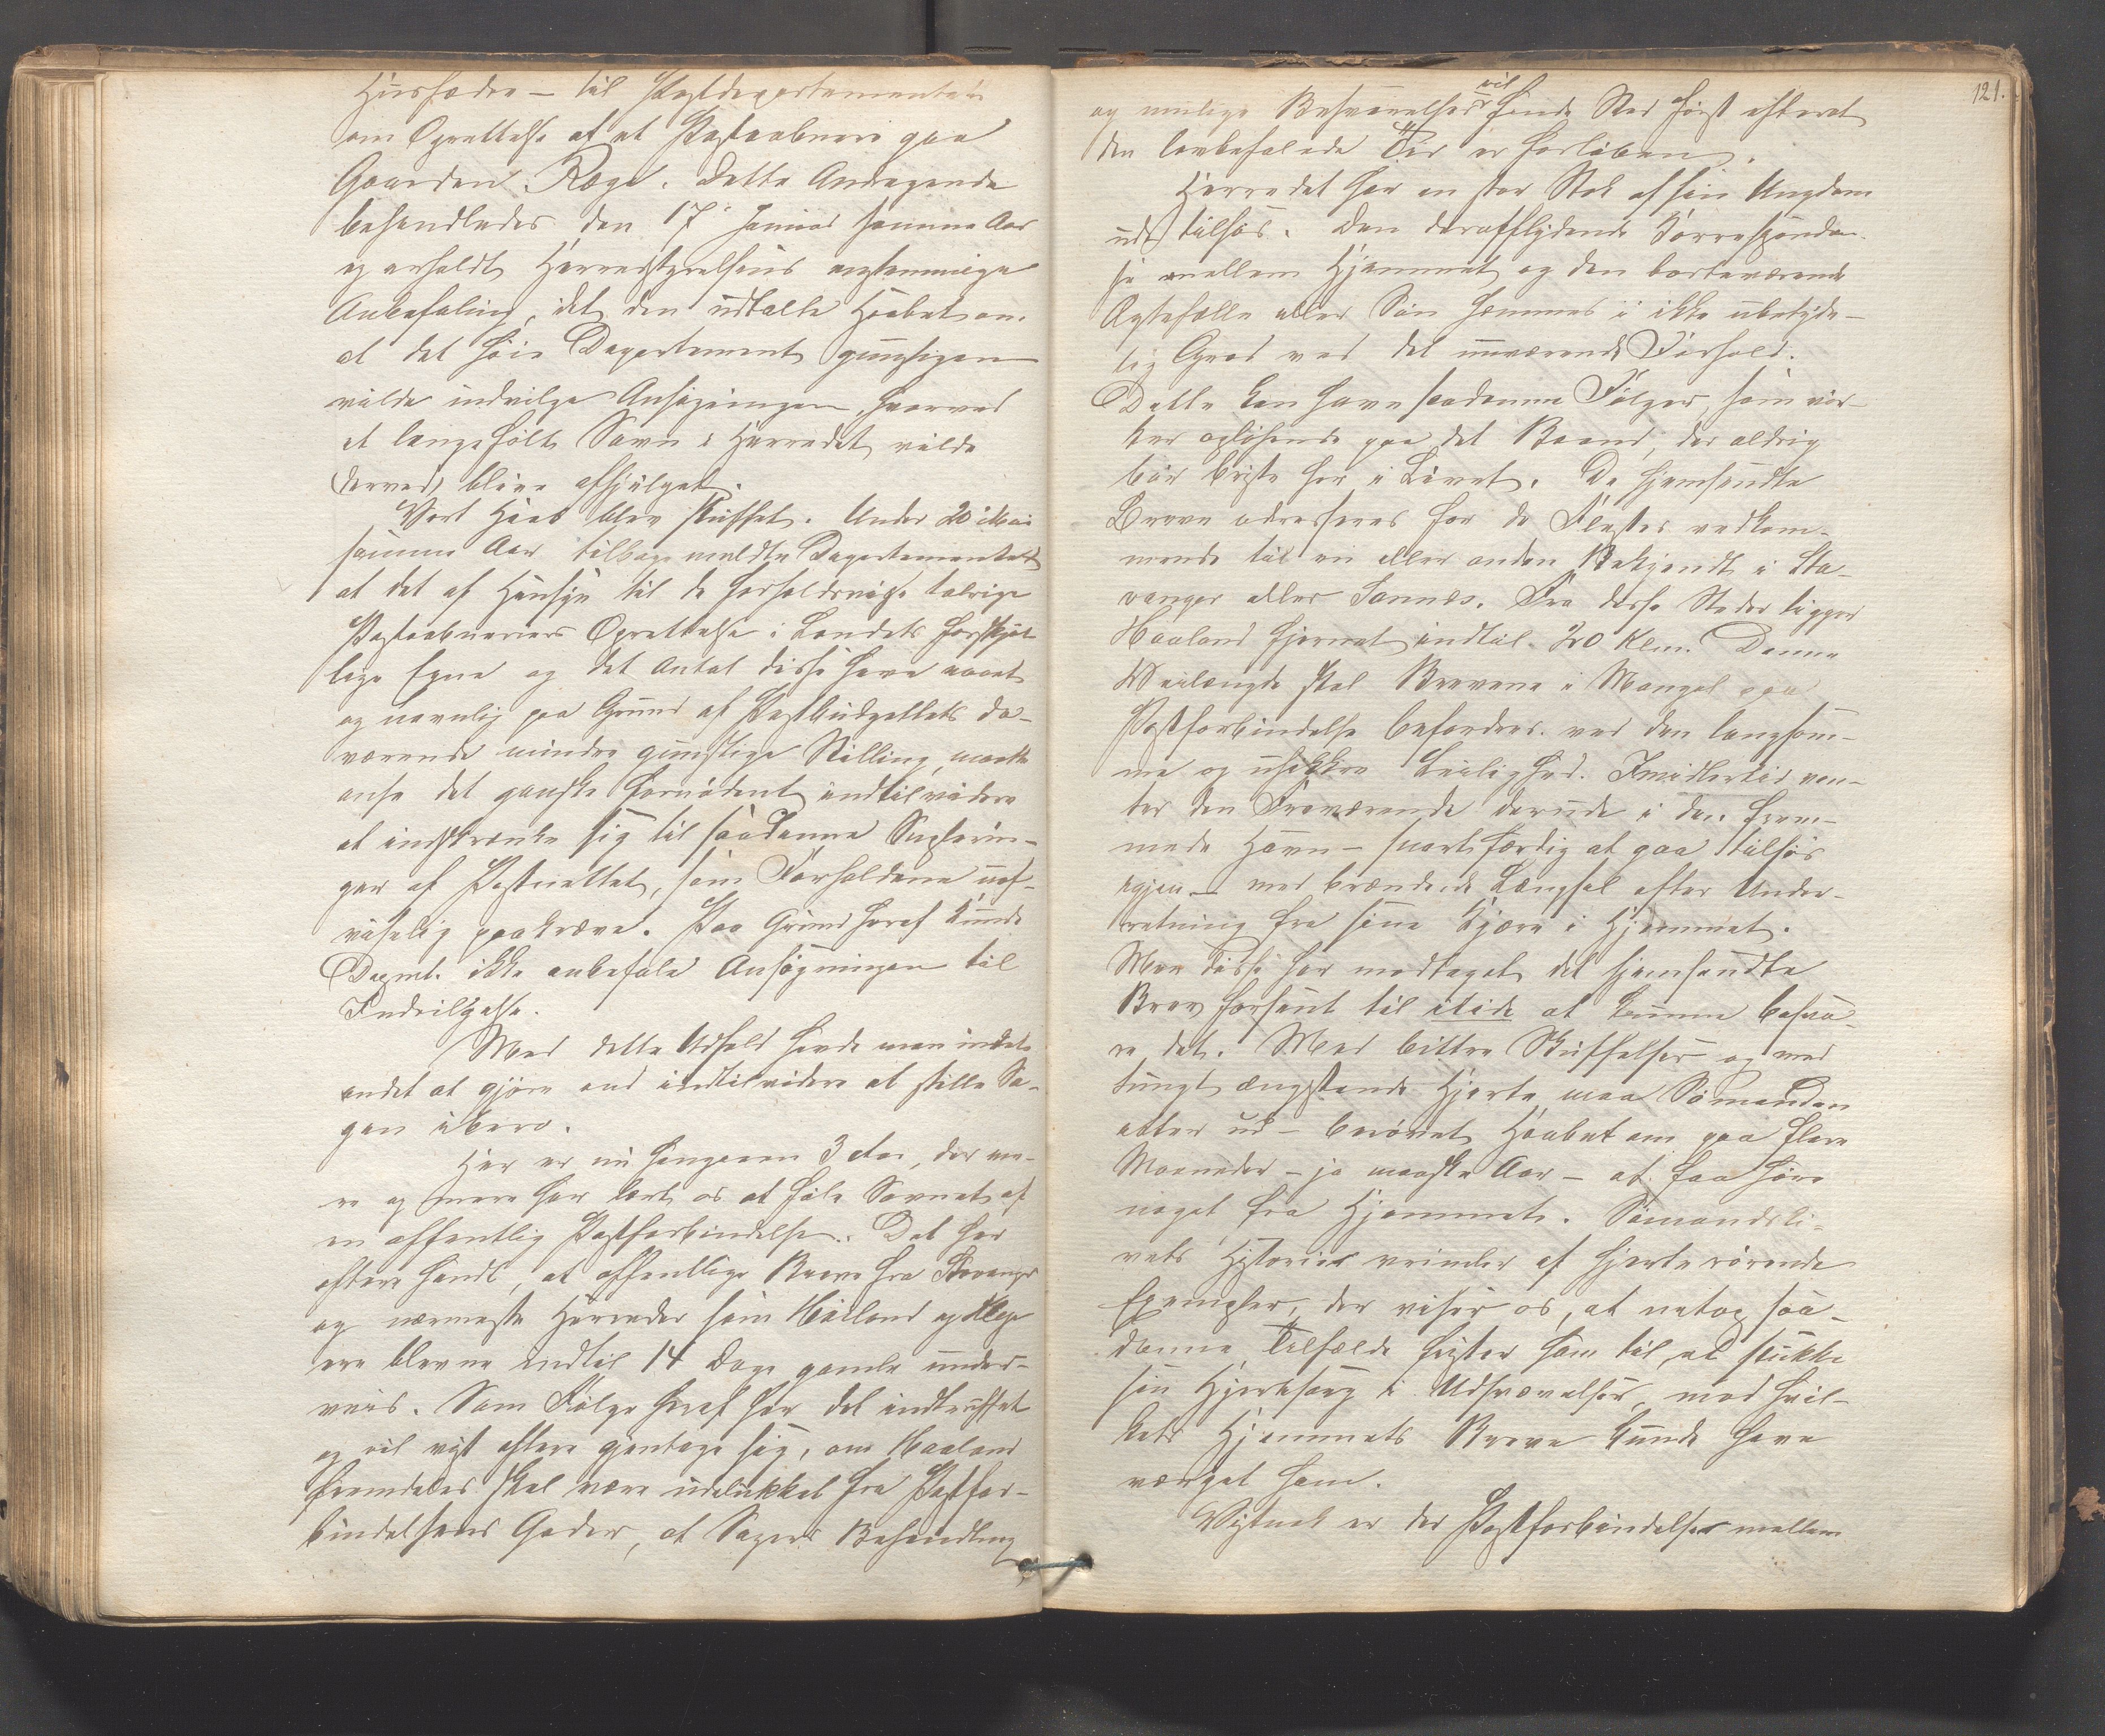 Husfædre – til Postdepartementet
om Oprettelse af et Postaabneri paa
Gaarden Ræge. Dette Andragende
behandledes den 17de Januar samme Aar
og erholdt Herredsstyrelsens enstemmige
Anbefaling, idet den udtalte Haabet om
at det høie Departement gunstigen
vilde indvilge Ansøgningen, hvorved
et længe følt Savn i Herredet vilde
derved blive afhjulpet.
Vort Haab blev skuffet. Under 20de Mai
samme Aar tilbagemeldte Departementet
at det af Hensyn til de forholdsvise talrige
Postaabneriers Oprettelse i Landets forskjel-
lige Egne og det Antal disse have naaet
og navnlig paa Grund af Postbudgettets da-
værende mindre gunstige Stilling, maatte
anse det ganske fornødent indtil videre
at indskrænke sig til saadanne Supplerin-
ger af Postnettet, som Forholdene uaf-
viselig paakræve. Paa Grund heraf kunde
Depmt. ikke anbefale Ansøgningen til
Indvilgelse.
Med dette Udfald havde man intet
andet at gjøre end indtilvidere at stille Sa-
gen ibero.
Her er nu hengaaen 3 Aar, der me-
re og mere har lært os at føle Savnet af
en offentlig Postforbindelse. Det har
oftere hændt, at offentlige Breve fra Stavanger
og nærmeste Herreder som Høiland og Klep
ere blevne indtil 14 Dage gamle under-
veis. Som Følge heraf har det indtruffet
og vil vist oftere gjentage sig, om Haaland
fremdeles skal være udelukket fra Postfor-
bindelsens Goder, at Sagers Behandling
121.
og mulige Besvarelser vil finde Sted først efterat
den lovbefalede Tid er forløben.
Herredet har en stor Stok af sin Ungdom
ude tilsøs. Den deraf flydende Korresponden-
se mellem Hjemmet og den borteværende
Ægtefælle eller Søn hemmes i ikke ubetyde-
lig Grad ved det nuværende Forhold.
Dette kan have saadanne Følger, som vir-
ker opløsende paa det Baand, der aldrig
bør briste her i Livet. De hjemsendte
Breve adresseres for de Flestes vedkom-
mende til en eller anden Bekjendt i Sta-
vanger eller Sannes. Fra disse Steder ligger
Haaland fjernet indtil 20 Klm. Denne
Veilængde skal Brevene i Mangel paa
Postforbindelse befordres ved den langsom-
me og usikkre Leilighed. Imidlertid ven-
ter den Fraværende derude i den frem-
mede Havn – snart færdig at gaa tilsøs
igjen – med brændende Længsel efter Under-
retning fra sine Kjære i Hjemmet.
Men disse har modtaget det hjemsendte
Brev forsent til itide at kunne besva-
re det. Med bittre Skuffelser og med
tungt ængstende Hjerte maa Sømanden
atter ud – berøvet Haabet om paa flere
Maaneder – ja maaske Aar – at faa høre
noget fra Hjemmet. Sømandsli-
vets Historier vrimler af hjerterørende
Exempler, der viser os, at netop saa-
danne Tilfælde frister ham til at stikke
sin Hjertesorg i Udsvævelser, mod hvil-
kets Hjemmets Breve kunde have
værget ham.
Vistnok er der Postforbindelser mellem